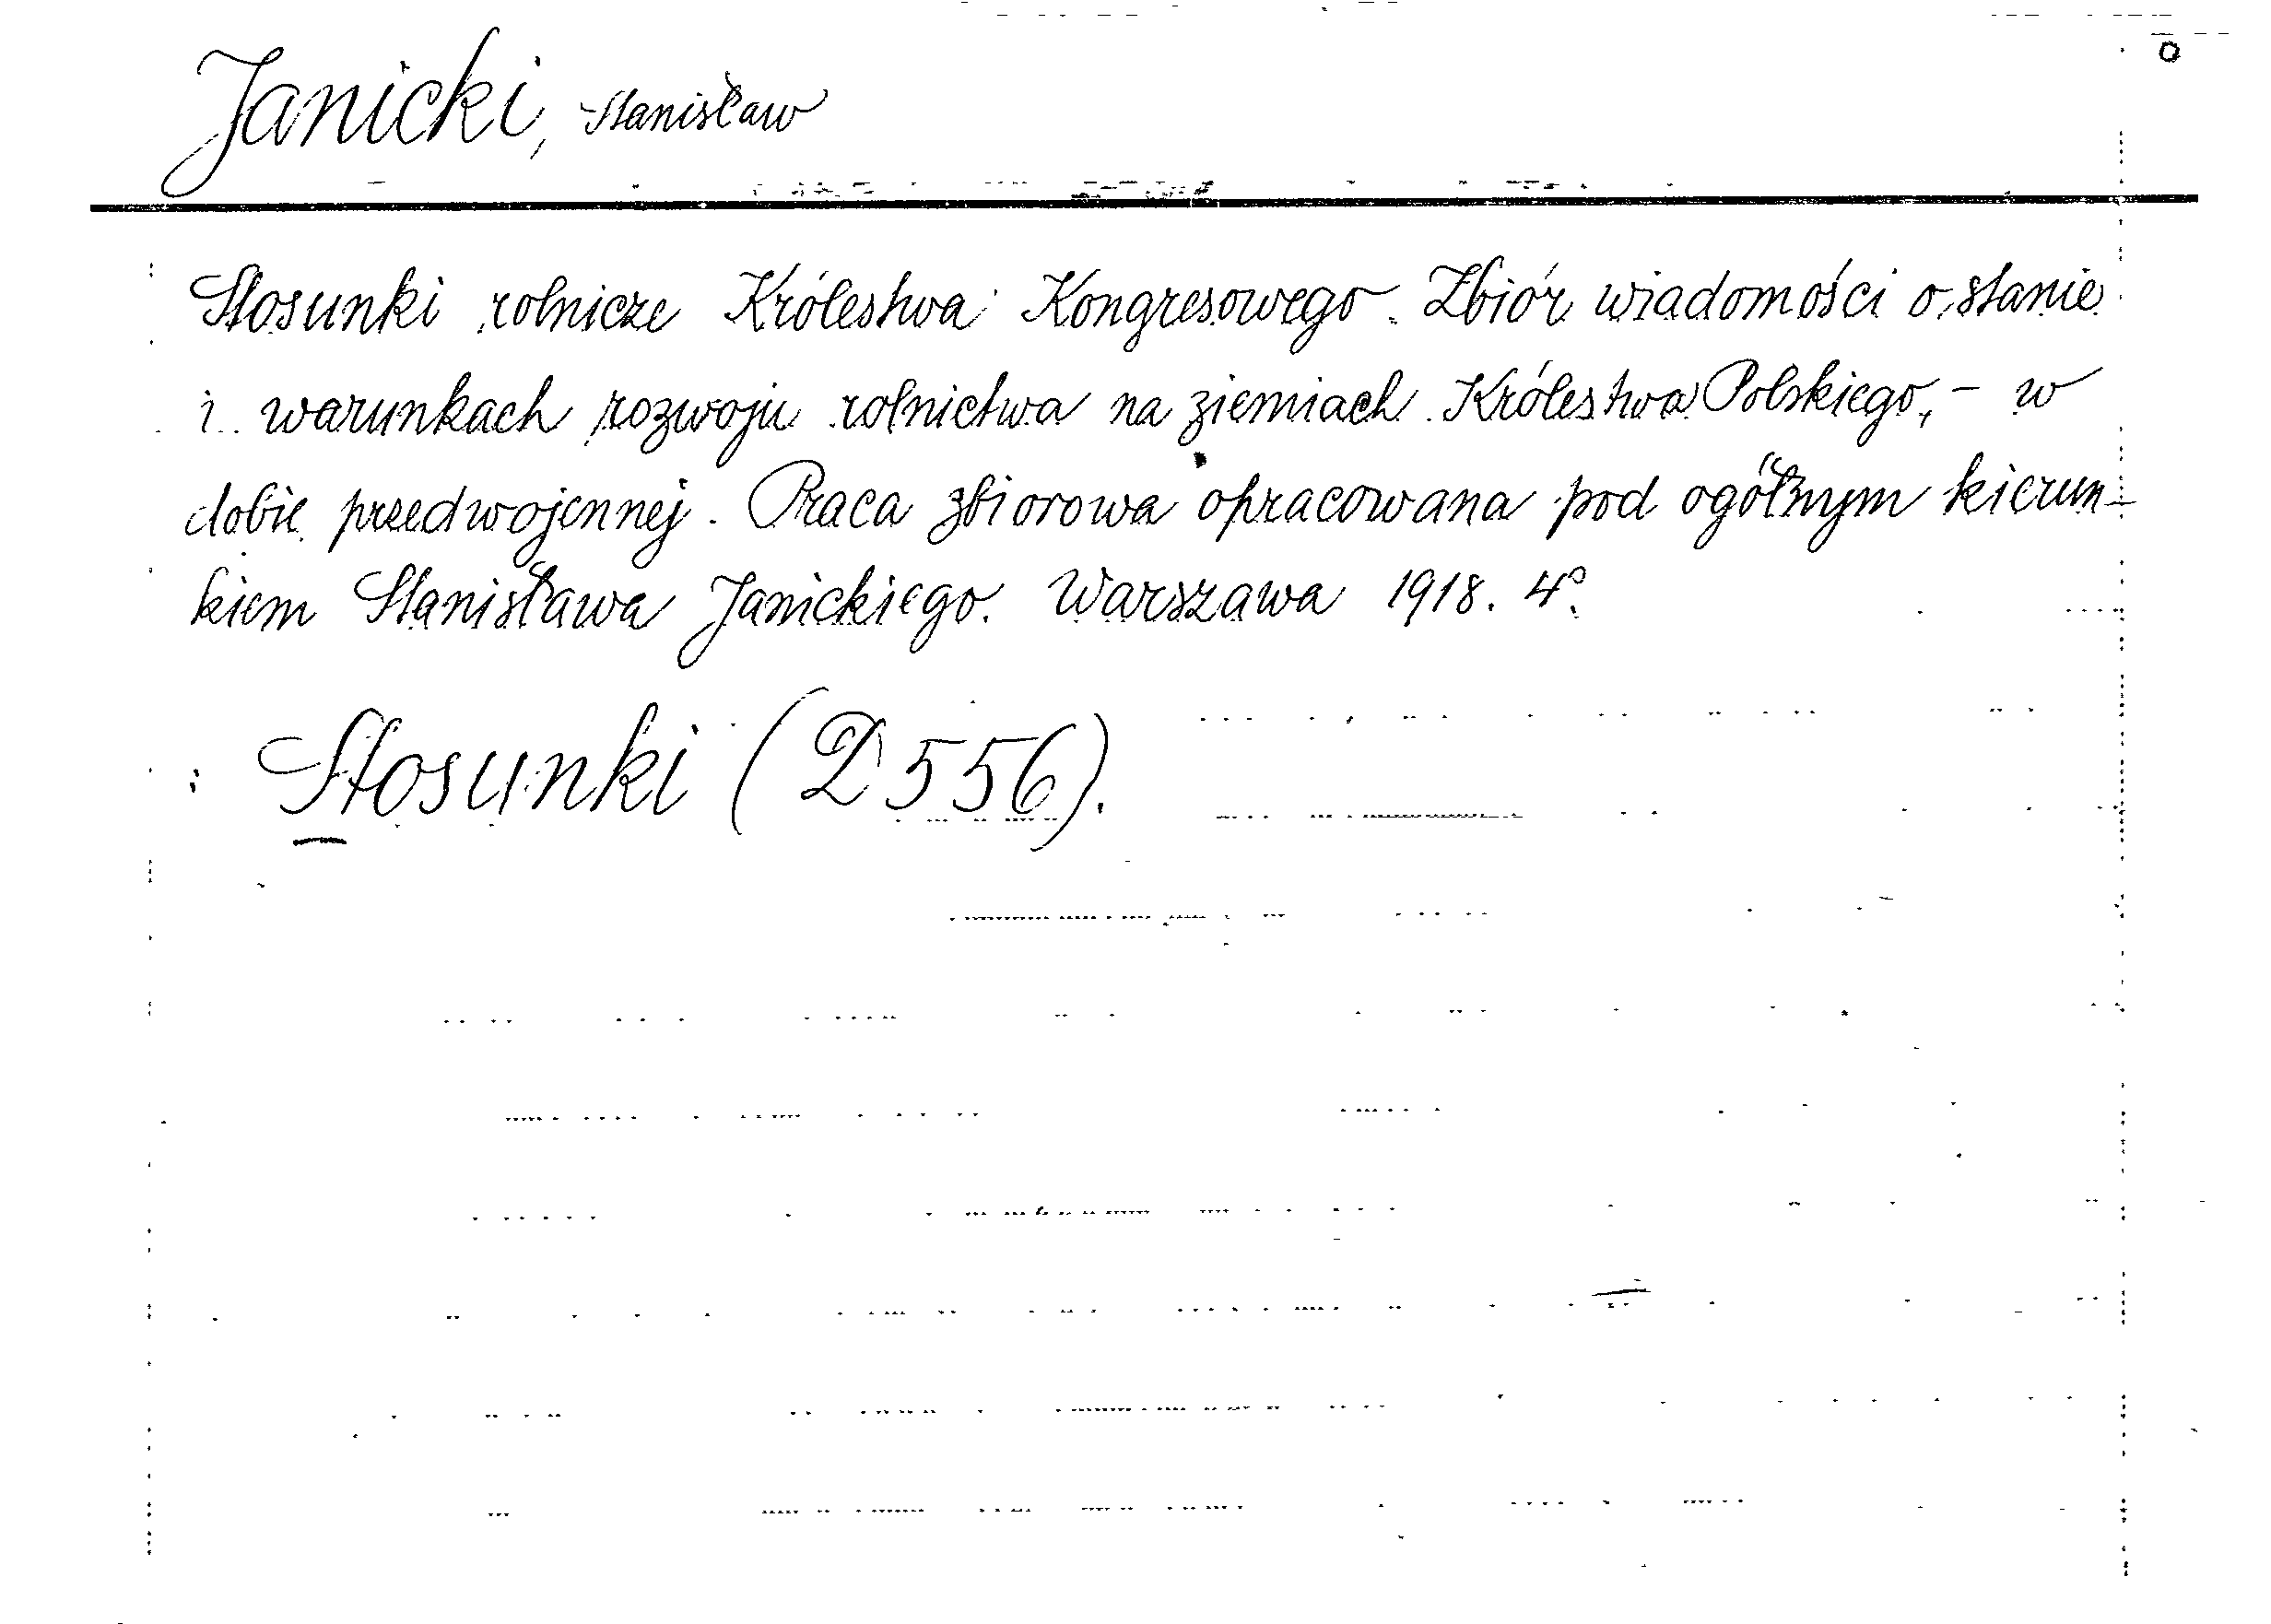 Janicki, Stanisław
Stosunki rolnicze Królestwa Kongresowego. Zbiór wiadomości o stanie
i warunkach rozwoju rolnictwa na ziemiach Królestwa Polskiego, - w
dobie przedwojennej. Praca zbiorowa opracowana pod ogólnym kierun-
kiem Stanisława Janickiego. Warszawa 1918. 4º.
Stosunki (D 556).